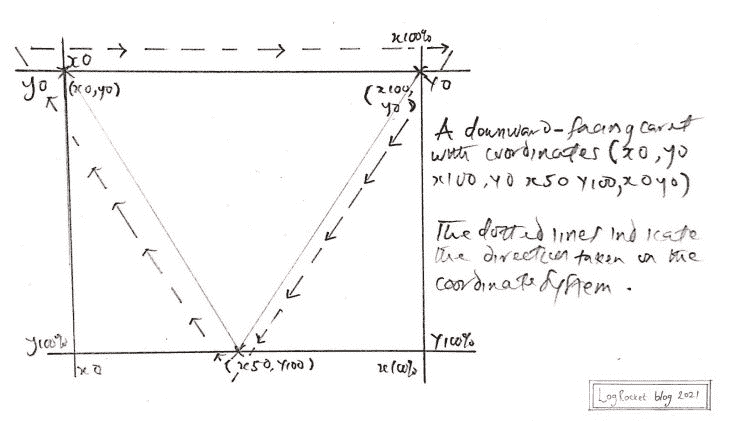 x100%
x0
y0
(x0,y0)
(x100,
y0)
Y0
A downward-facing caret
with coordinates (x0,y0
x100,y0 x50 Y100,x0y0)
The dotted lines indicate
the direction taken in the
coordinate System.
y100%
x0
(x50,y100)
x100%
Y100%
LogRocket blog 2021